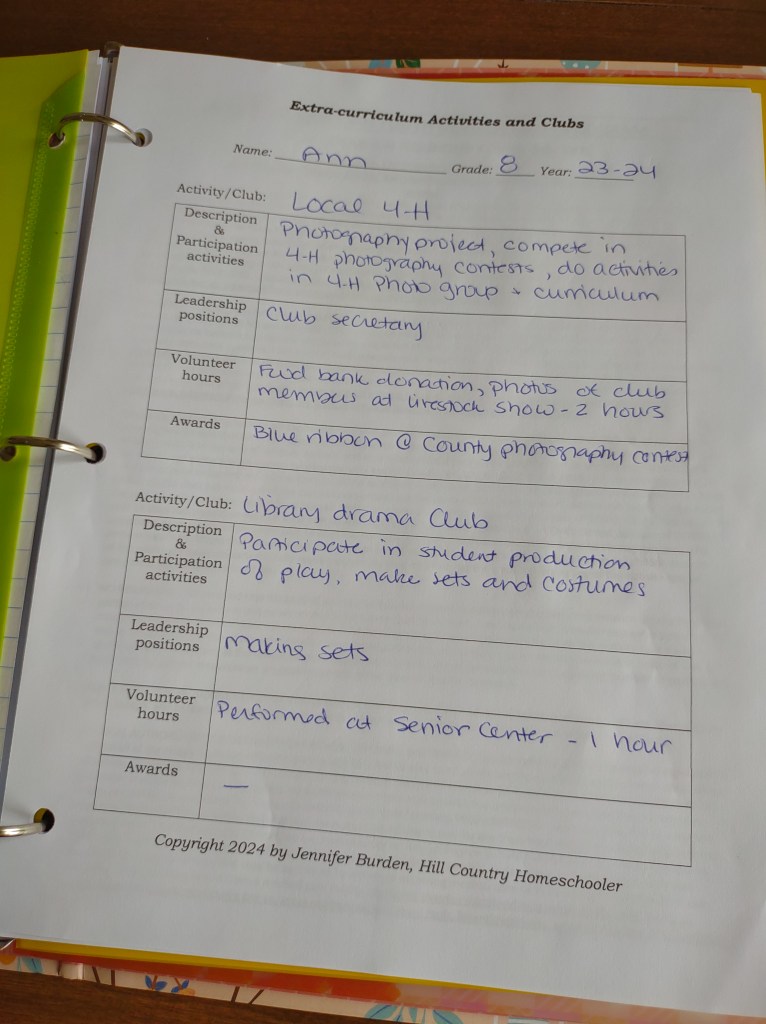 Extra-curriculum Activities and Clubs
Name: Ann Grade: 8 Year: 23-24
Activity/Club: Local 4-H
Description
&
Participation
activities
Photography project, compete in
4-H photography contests, do activities
in 4-H Photo group + curriculum
Leadership
positions
Club secretary
Volunteer
hours
Food bank donation, photos of club
members at livestock show - 2 hours
Awards
Blue ribbon @ County photography contest
Activity/Club: Library drama Club
Description
&
Participation
activities
Participate in student production
of play, make sets and costumes
Leadership
positions
making sets
Volunteer
hours
Performed at Senior Center - 1 hour
Awards
—
Copyright 2024 by Jennifer Burden, Hill Country Homeschooler